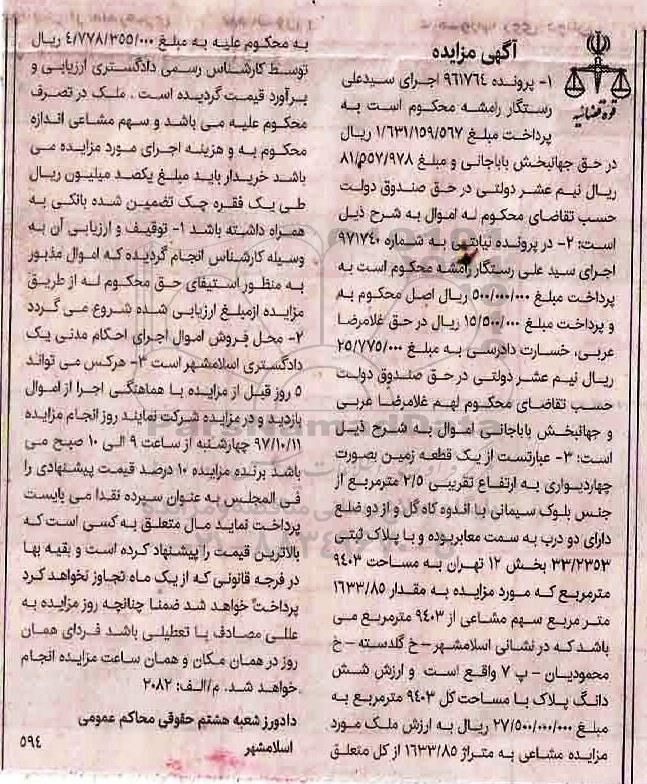 آگهی مزایده
قوه قضائیه
۱- پرونده ۹۶۱۷۶۴ اجرای سیدعلی
رستگار رامشه محکوم است به
پرداخت مبلغ ۱/۶۳۱/۱۵۹/۵۶۷ ریال
در حق جهانبخش باباجانی و مبلغ ۸۱/۵۵۷/۹۷۸
ریال نیم عشر دولتی در حق صندوق دولت
حسب تقاضای محکوم له اموال به شرح ذیل
است: ۲- در پرونده نیابتهی به شماره ۹۷۱۷۴۰
اجرای سید علی رستگار رامشه محکوم است به
پرداخت مبلغ ۵۰۰/۰۰۰/۰۰۰ ریال اصل محکوم به
و پرداخت مبلغ ۱۵/۵۰۰/۰۰۰ ریال در حق غلامرضا
عربی، خسارت دادرسی به مبلغ ۲۵/۷۷۵/۰۰۰
ریال نیم عشر دولتی در حق صندوق دولت
حسب تقاضای محکوم لهم غلامرضا عربی
و جهانبخش باباجانی اموال به شرح ذیل
است: ۳- عبارتست از یک قطعه زمین بصورت
چهاردیواری به ارتفاع تقریبی ۲/۵ مترمربع از
جنس بلوک سیمانی با اندوه کاه گل و از دو ضلع
دارای دو درب به سمت معابربوده و با پلاک ثبتی
۳۳/۲۳۵۳ بخش ۱۲ تهران به مساحت ۹۴۰۳
مترمربع که مورد مزایده به مقدار ۱۶۳۳/۸۵
متر مربع سهم مشاعی از ۹۴۰۳ مترمربع می
باشد که در نشانی اسلامشهر – خ گلدسته – خ
محمودیان – پ ۷ واقع است و ارزش شش
دانگ پلاک با مساحت کل ۹۴۰۳ مترمربع به
مبلغ ۲۷/۵۰۰/۰۰۰/۰۰۰ ریال به ارزش ملک مورد
مزایده مشاعی به متراژ ۱۶۳۳/۸۵ از کل متعلق
به محکوم علیه به مبلغ ۴/۷۷۸/۳۵۵/۰۰۰ ریال
توسط کارشناس رسمی دادگستری ارزیابی و
برآورد قیمت گردیده است . ملک در تصرف
محکوم علیه می باشد و سهم مشاعی اندازه
محکوم به و هزینه اجرای مورد مزایده می
باشد خریدار باید مبلغ یکصد میلیون ریال
طی یک فقره چک تضمین شده بانکی به
همراه داشته باشد ۱- توقیف و ارزیابی آن به
وسیله کارشناس انجام گردیده که اموال مذبور
به منظور استیفای حق محکوم له از طریق
مزایده ازمبلغ ارزیابی شده شروع می گردد
۲- محل فروش اموال اجرای احکام مدنی یک
دادگستری اسلامشهر است ۳- هرکس می تواند
۵ روز قبل از مزایده با هماهنگی اجرا از اموال
بازدید و در مزایده شرکت نمایند روز انجام مزایده
۹۷/۱۰/۱۱ چهارشنبه از ساعت ۹ الی ۱۰ صبح می
باشد برنده مزایده ۱۰ درصد قیمت پیشنهادی را
فی المجلس به عنوان سپرده نقدا می بایست
پرداخت نماید مال متعلق به کسی است که
بالاترین قیمت را پیشنهاد کرده است و بقیه بها
در فرجه قانونی که از یک ماه تجاوز نخواهد کرد
پرداخت خواهد شد ضمنا چنانچه روز مزایده به
عللی مصادف با تعطیلی باشد فردای همان
روز در همان مکان و همان ساعت مزایده انجام
خواهد شد. م/الف: ۲۰۸۲
دادورز شعبه هشتم حقوقی محاکم عمومی
اسلامشهر
۵۹۴